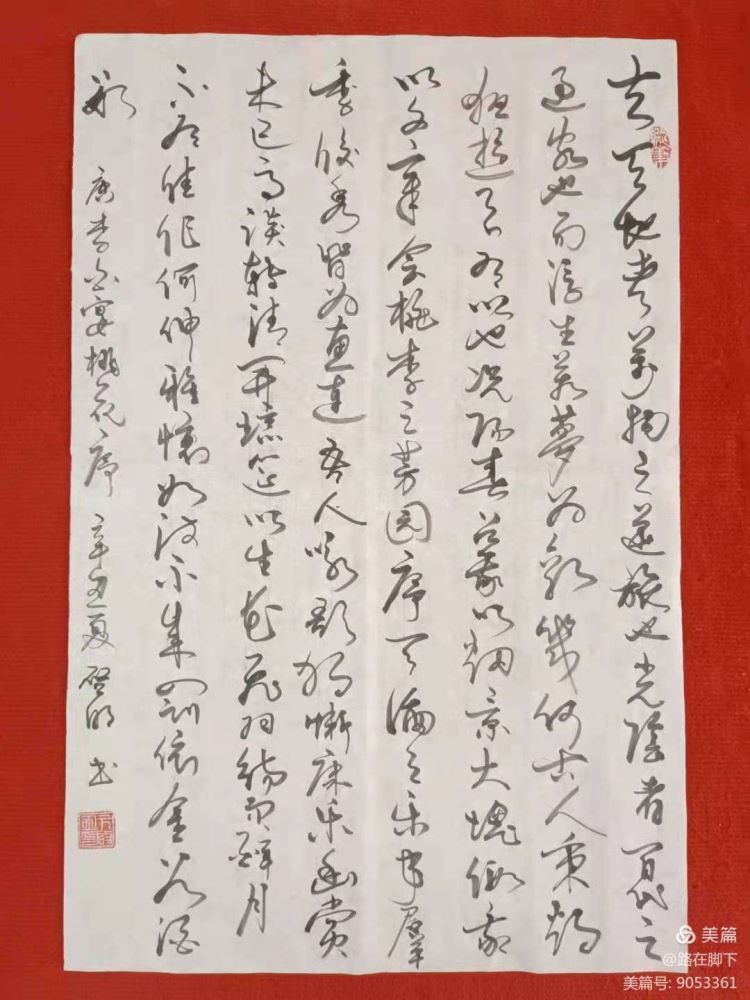 夫天地者萬物之逆旅也光陰者百代之
過客也而浮生若夢為歡幾何古人秉燭
夜遊良有以也况陽春召我以烟景大塊假我
以文章會桃李之芳園序天倫之樂事羣
季俊秀皆為惠連吾人咏歌獨慚康樂幽賞
未已高談轉清開瓊筵以坐花飛羽觴而醉月
不有佳作何伸雅懷如詩不成罰依金谷酒
數 唐李白宴桃花序 辛丑夏 啓明書
美篇
@路在脚下
美篇号: 9053361